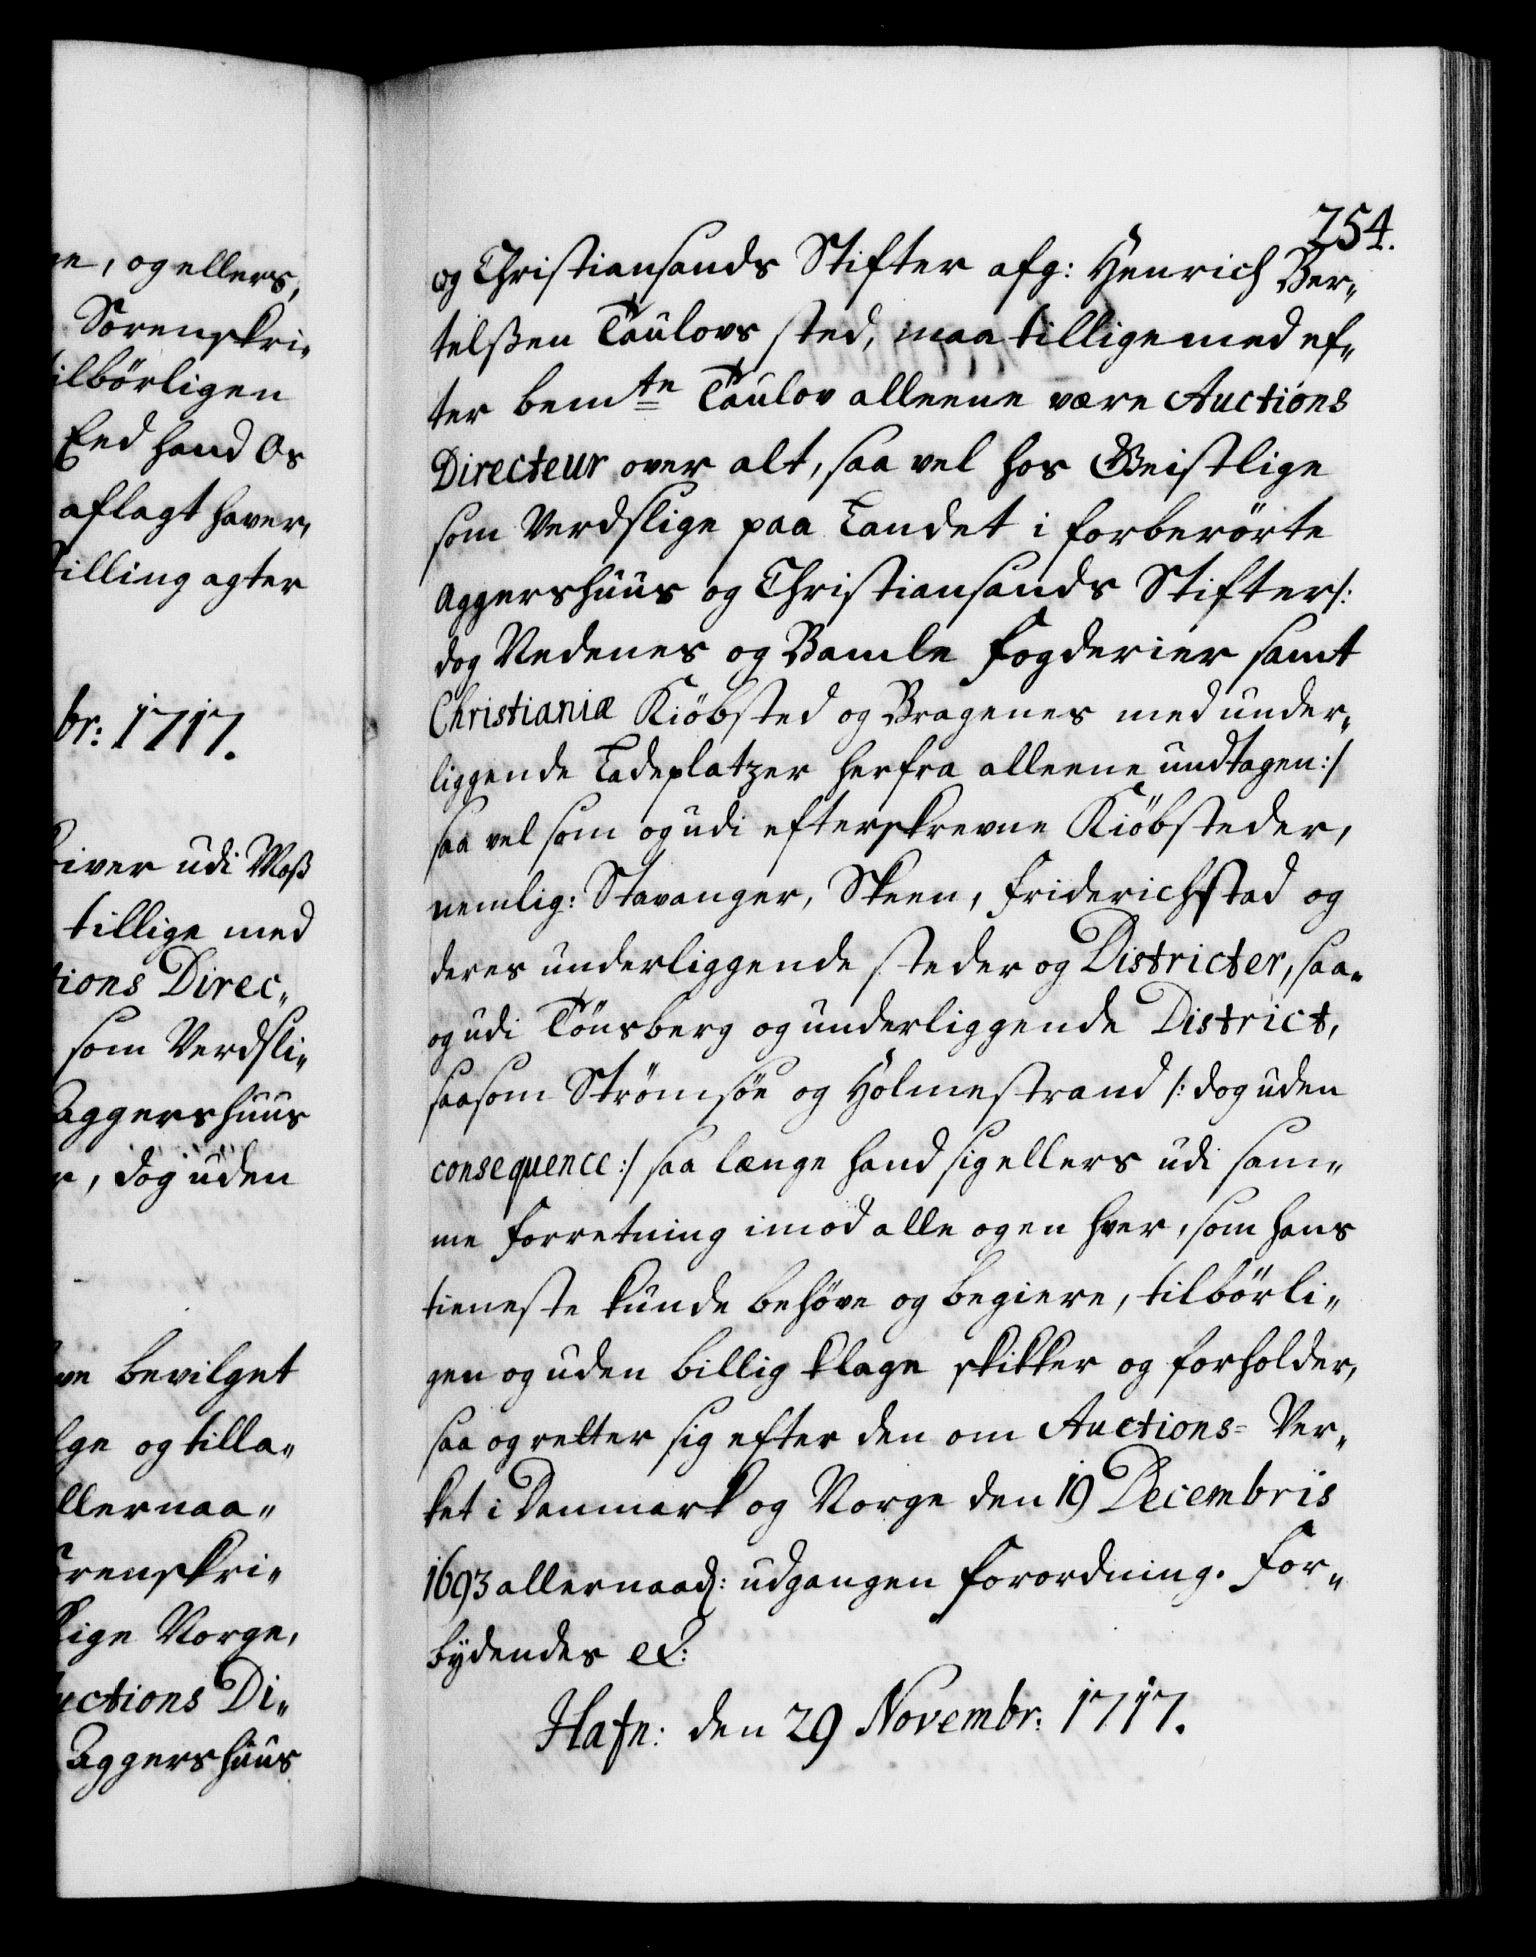 e, og ellers,
Sorenskri„
tilbörligen
Eed hand Os
aflagt haver,
stilling agter
br: 1717.
skriver udi Moss
tillige med
tions Direc„
som Verdsli„
Aggershuus
r, dog uden
ve bevilget
lge og tilla„
llernaa„
orenskri„
Rige Norge,
uctions Di„
Aggershuus
254.
og Christiansands Stifter afg: Henrich Ber„
telßen Taulovs sted, maa tilligemed ef„
ter bemte Taulov alleene være Auctions
Directeur over alt, saa vel hos Geistlige
som Verdslige paa Landet i forberörte
Aggershuus og Christiansands Stifter /:
dog Nedenes og Bamle fogderier samt
Christiania Kiöbsted og Bragenes med under„
liggende Ladeplatzer herfra alleene undtagen :/
saa vel som og udi efterskrevne Kiöbsteder,
nemlig: Stavanger, Skeen, Friderichstad og
deres underliggende steder og Districter, saa„
og udi Tönsberg og underliggende District,
saasom Strömsöe og Holmestrand /: dog uden
consequence :/ saa længe hand sig ellers udi sam„
me forretning imod alle og en hver, som hans
tieneste kunde behöve og begiere, tilbörli„
gen og uden billig klage skikker og forholder,
saa og retter sig efter den om Auctions= Ver„
ket i Danmark og Norge den 19 Decembris
1693 allernaad: udgangen forordning. For„
bydendes etc:
Hafn: den 29 Novembr: 1717.